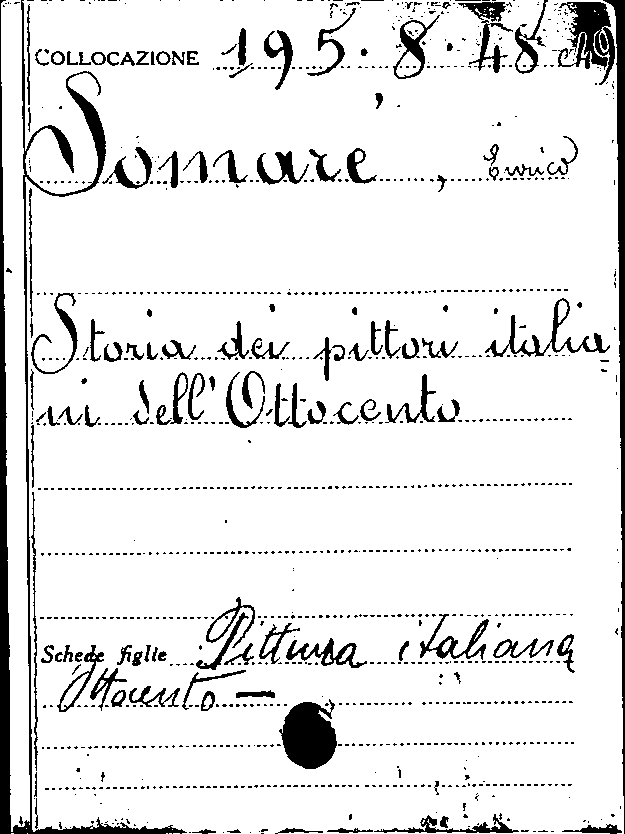 COLLOCAZIONE 195.8.48 e 49
Somarè, Enrico
Storia dei pittori italia=
ni dell'Ottocento
Schede figlie Pittura italiana
Ottocento —